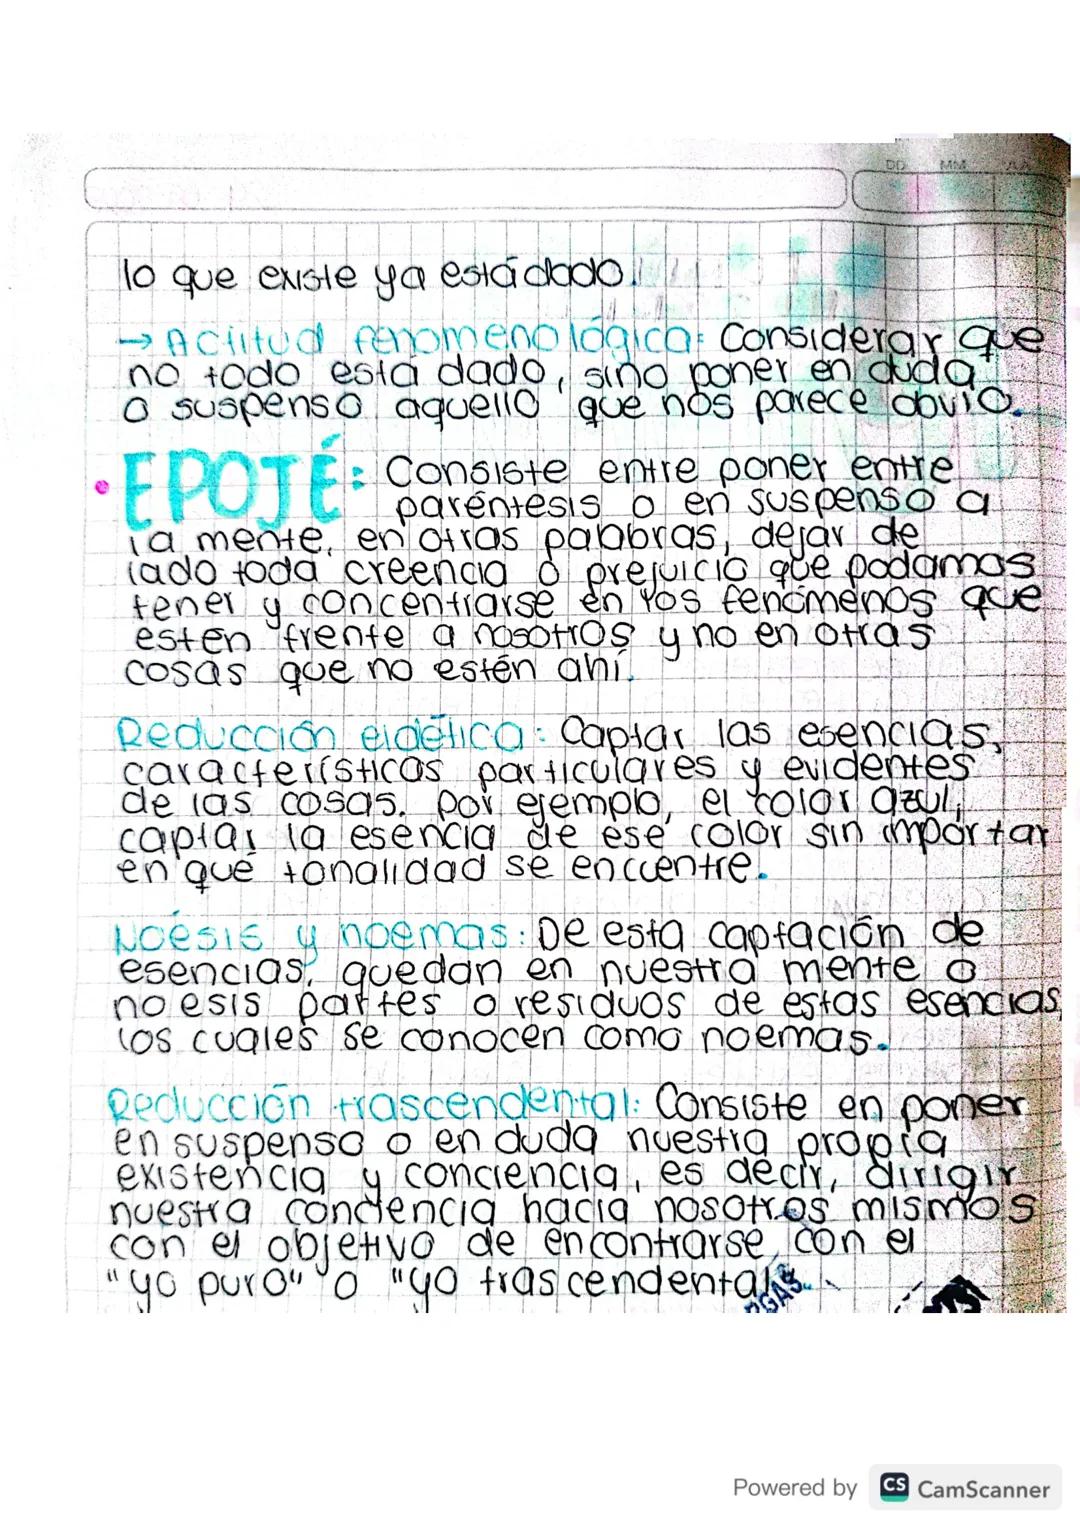 DD MM AA
lo que existe ya está dado.
→ Actitud fenomenológica: Considerar que
no todo está dado, sino poner en duda
o suspenso aquello que nos parece obvio.
• EPOJÉ: Consiste entre poner entre
paréntesis o en suspenso a
la mente, en otras palabras, dejar de
lado toda creencia o prejuicio que podamos
tener y concentrarse en los fenómenos que
esten frente a nosotros y no en otras
cosas que no estén ahí.
Reducción eidética: Captar las esencias,
características particulares y evidentes
de las cosas. por ejemplo, el color azul,
captar la esencia de ese color sin importar
en qué tonalidad se encuentre.
Noésis y noemas: De esta captación de
esencias, quedan en nuestra mente o
noesis partes o residuos de estas esencias,
los cuales se conocen como noemas.
Reducción trascendental: Consiste en poner
en suspenso o en duda nuestra propia
existencia y conciencia, es decir, dirigir
nuestra conciencia hacia nosotros mismos
con el objetivo de encontrarse con el
"yo puro" o "yo trascendental"
Powered by CS CamScanner